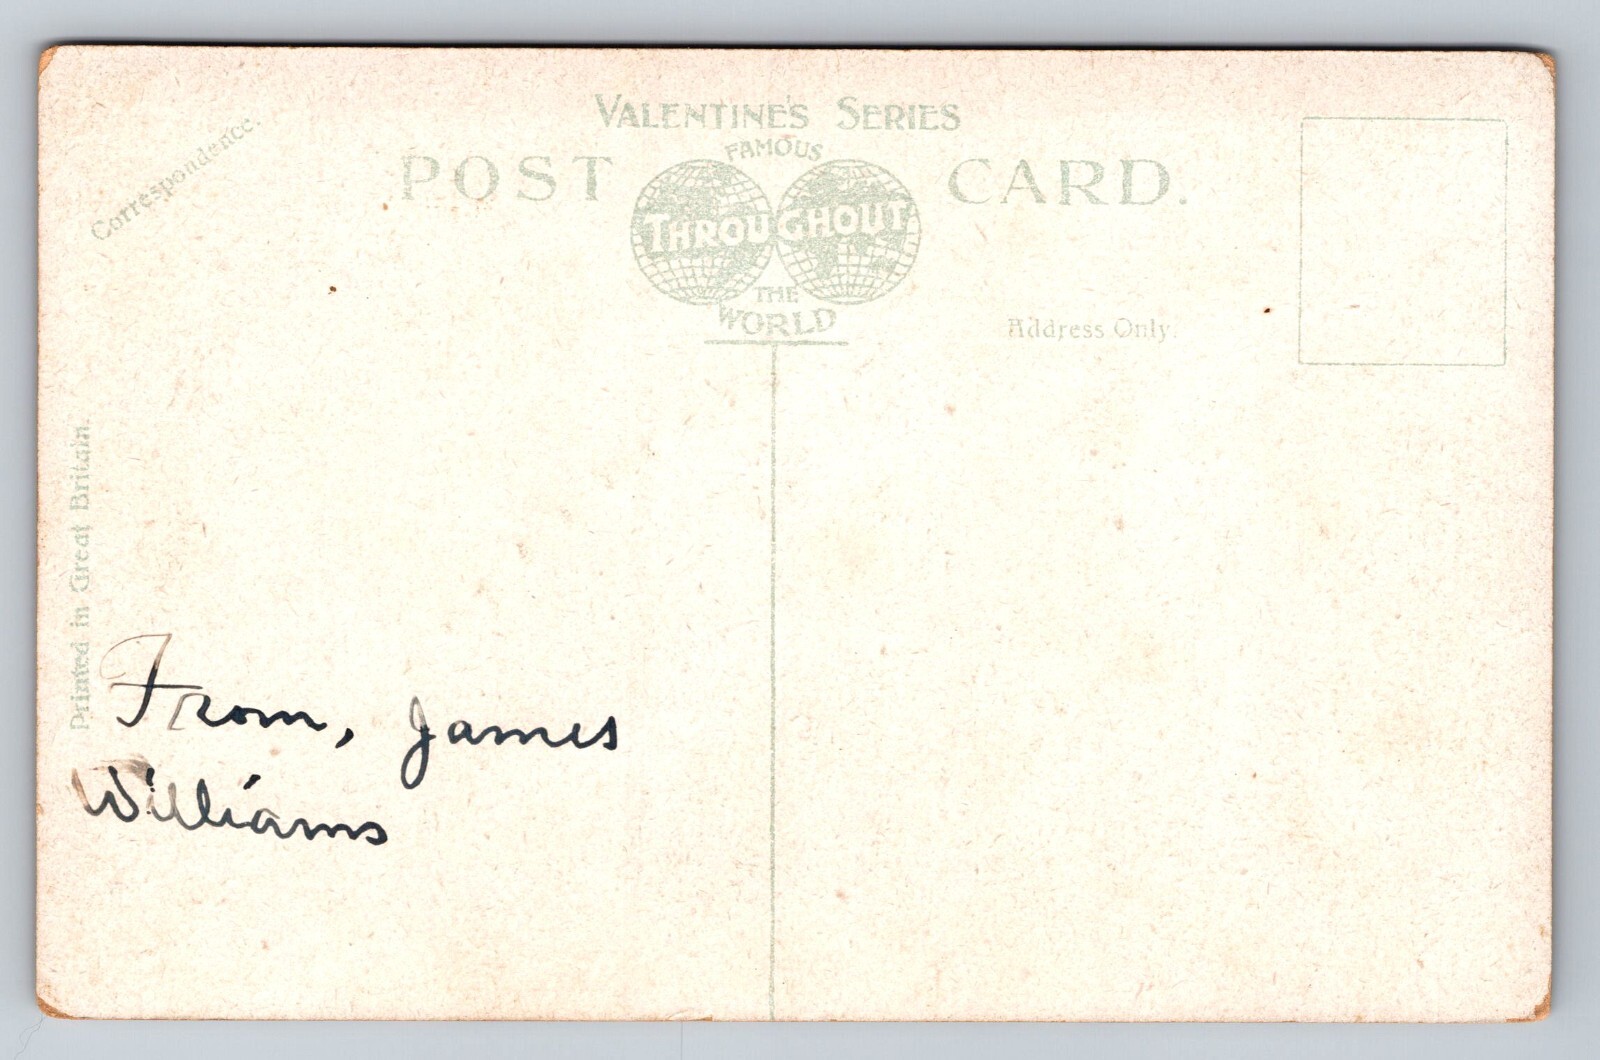 VALENTINE'S SERIES
FAMOUS
POST CARD.
THROUGHOUT
THE
WORLD
Correspondence.
Address Only.
Printed in Great Britain.
From, James
Williams